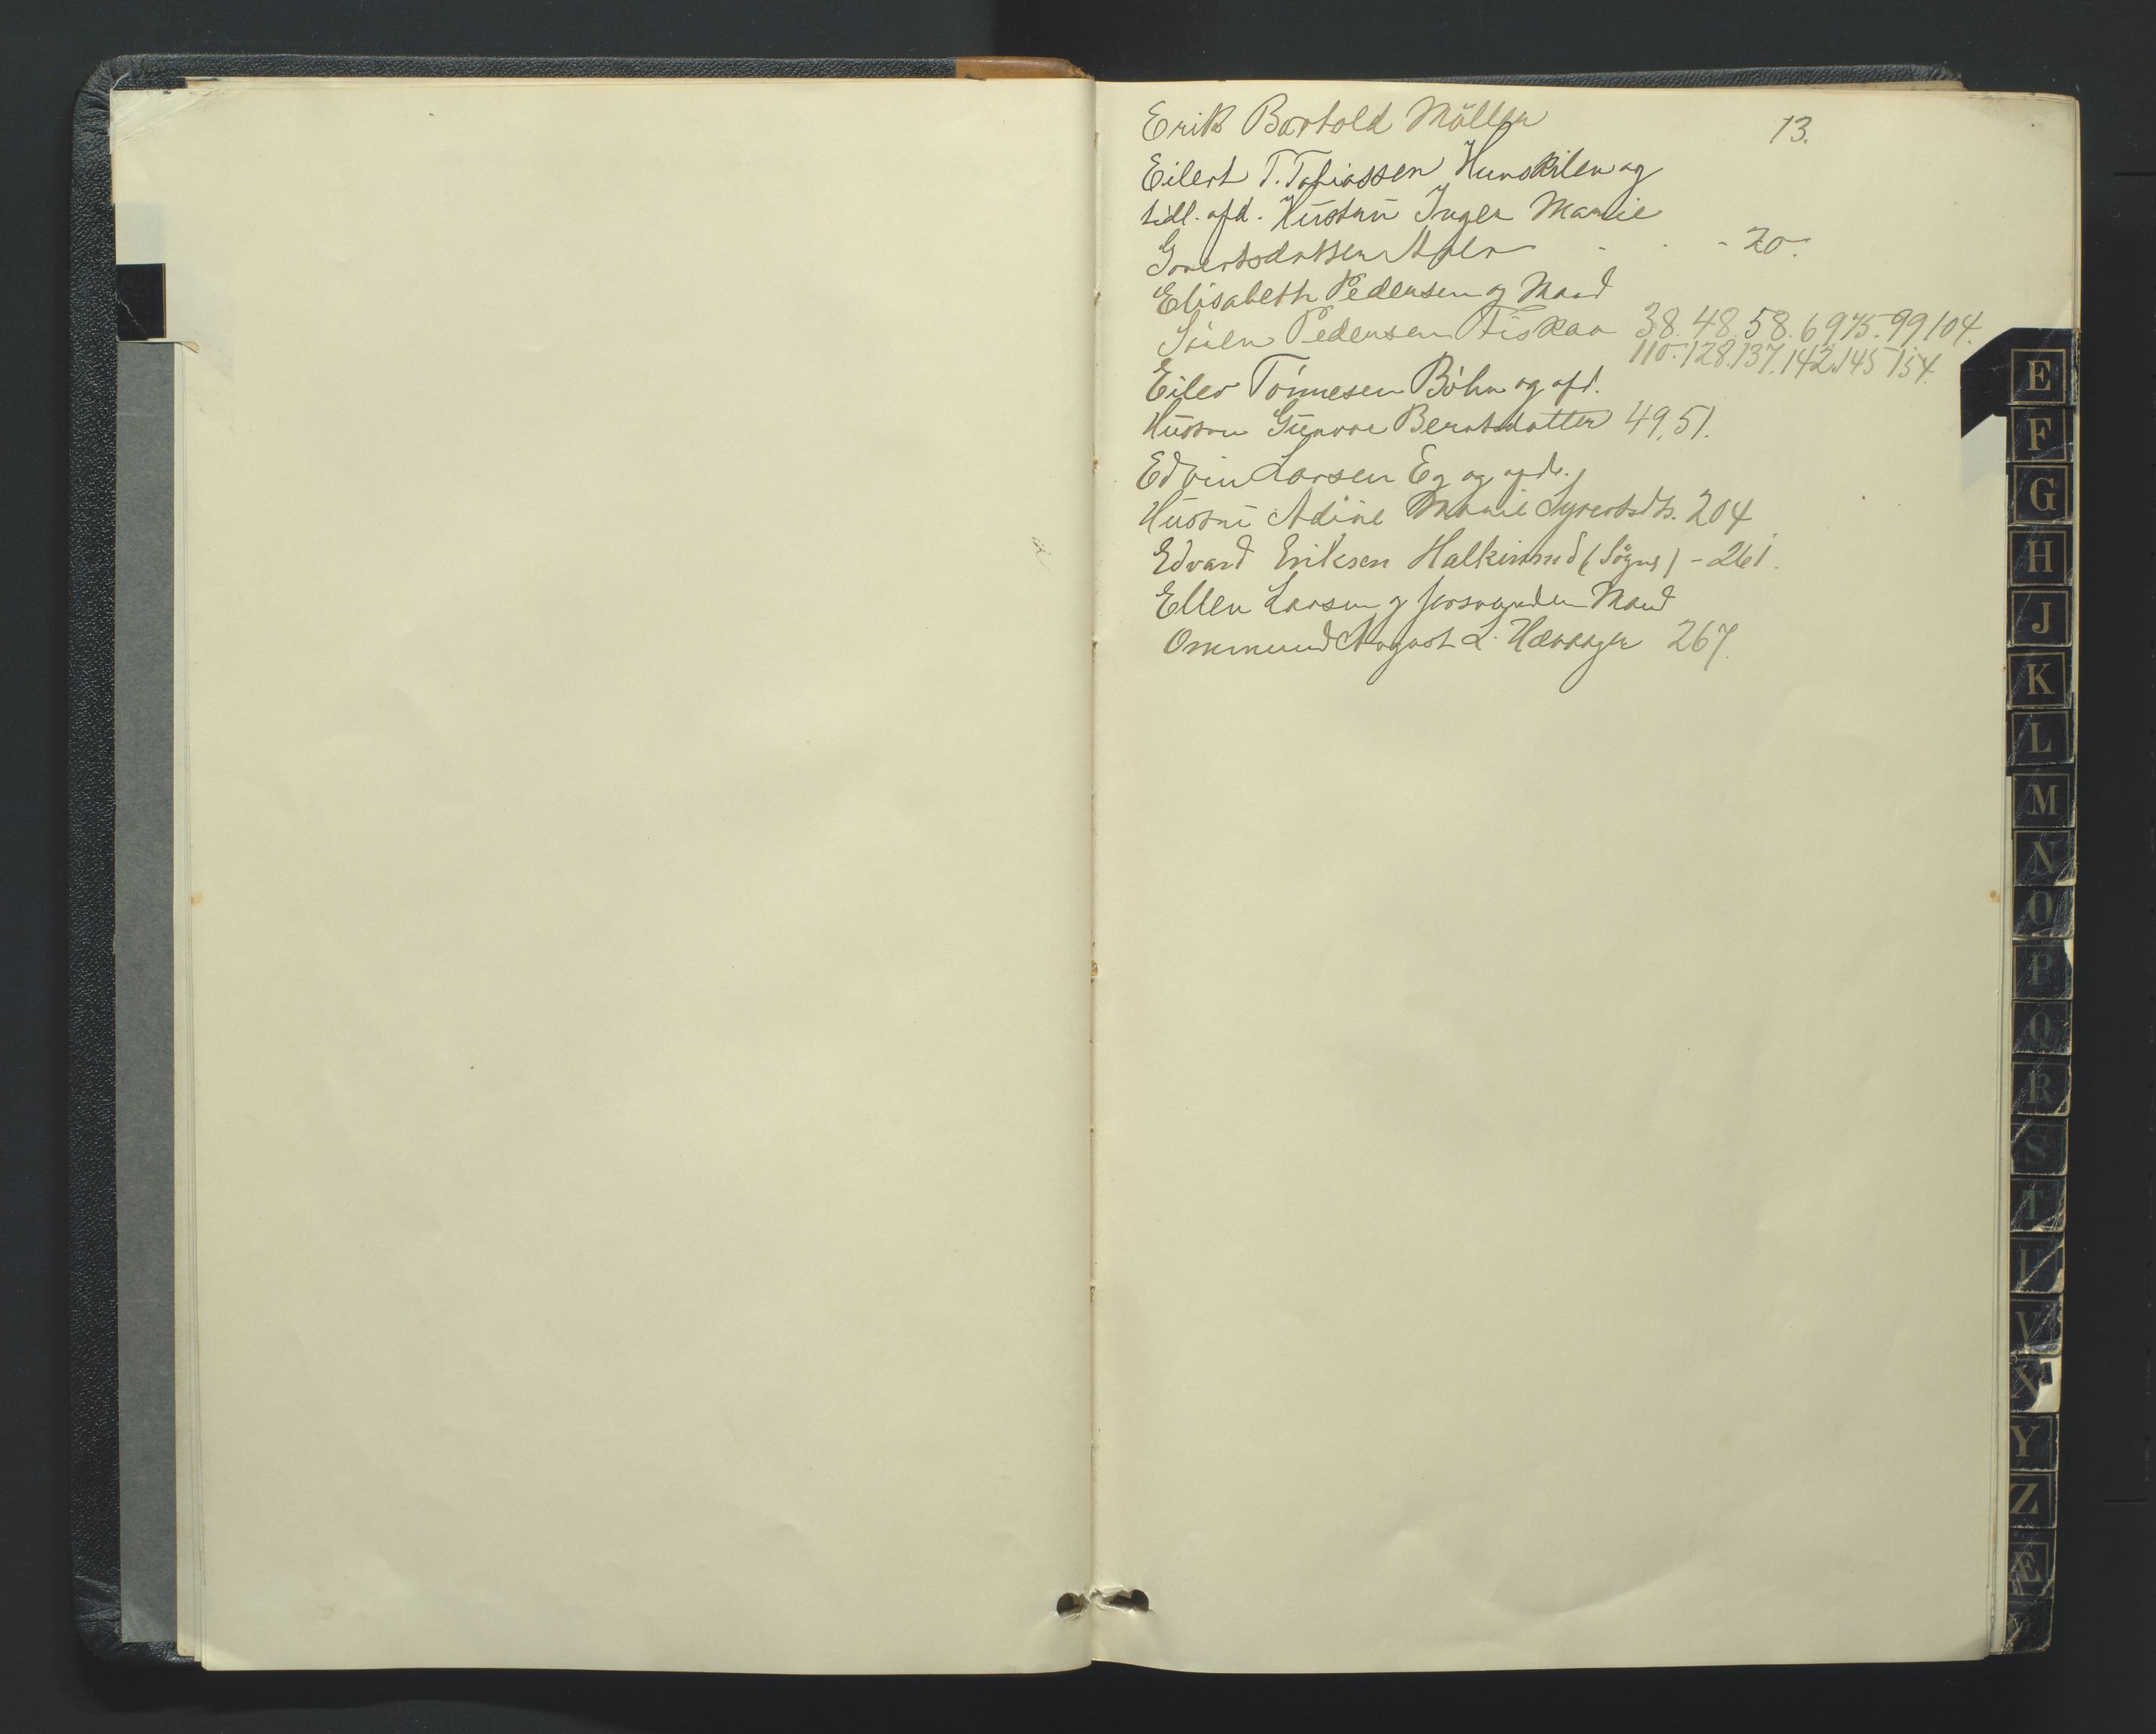 Erik Bartold Möller 13.
Eilert T. Tobiassen Hunskilen og
tidl. afd. Hustru Inger Marie
Govertsdatter Aplen - - - 20.
Elisabeth Pedersen og Mand
Sören Pedersen Fiskaa 38. 48. 58. 69. 75. 99. 104.
110. 128. 137. 142. 145 154.
Eilev Tönnesen Böhn og afd.
Hustru Gunvor Berntsdatter 49, 51.
Edvin Larsen Eg og afd.
Hustru Adine Marie Syvertsdtr. 204
Edvard Eriksen (Sögne) - 261.
Ellen Larsen og forsvunden Mand
Ommund August L. 267.
E
F
G
H
J
K
L
M
N
O
P
Q
R
S
T
U
V
X
Y
Z
Æ